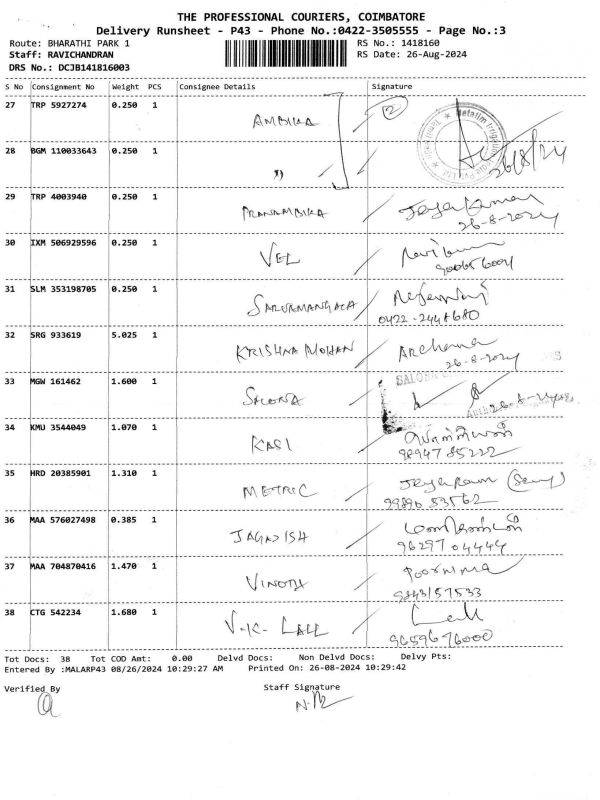 THE PROFESSIONAL COURIERS, COIMBATORE
Delivery Runsheet - P43 - Phone No.:0422-3505555 - Page No.:3
Route: BHARATHI PARK 1
RS No.: 1418160
Staff: RAVICHANDRAN
RS Date: 26-Aug-2024
DRS No.: DCJB141816003
S No Consignment No Weight PCS Consignee Details Signature
27 TRP 5927274 0.250 1 AMBIKA 2
26/8/24
28 BGM 110033643 0.250 1 "
29 TRP 4003940 0.250 1 PRANAMBIKA Jeyakumar
26-8-2024
30 IXM 506929596 0.250 1 VEL
31 SLM 353198705 0.250 1
0422-2448680
32 SRG 933619 5.025 1 KRISHNA MOHAN Archana
26-8-2024
33 MGW 161462 1.600 1 SALONA
34 KMU 3544049 1.070 1 KASI
98947 85222
35 HRD 20385901 1.310 1 METRIC Jeyaram
99890 53562
36 MAA 576027498 0.385 1 JAGADISH
96297 04444
37 MAA 704870416 1.470 1 VINOTH Poornima
9843157533
38 CTG 542234 1.680 1 V.K. LALL Lall
9659676000
Tot Docs: 38 Tot COD Amt: 0.00 Delvd Docs: Non Delvd Docs: Delvy Pts:
Entered By :MALARP43 08/26/2024 10:29:27 AM Printed On: 26-08-2024 10:29:42
Verified By Staff Signature